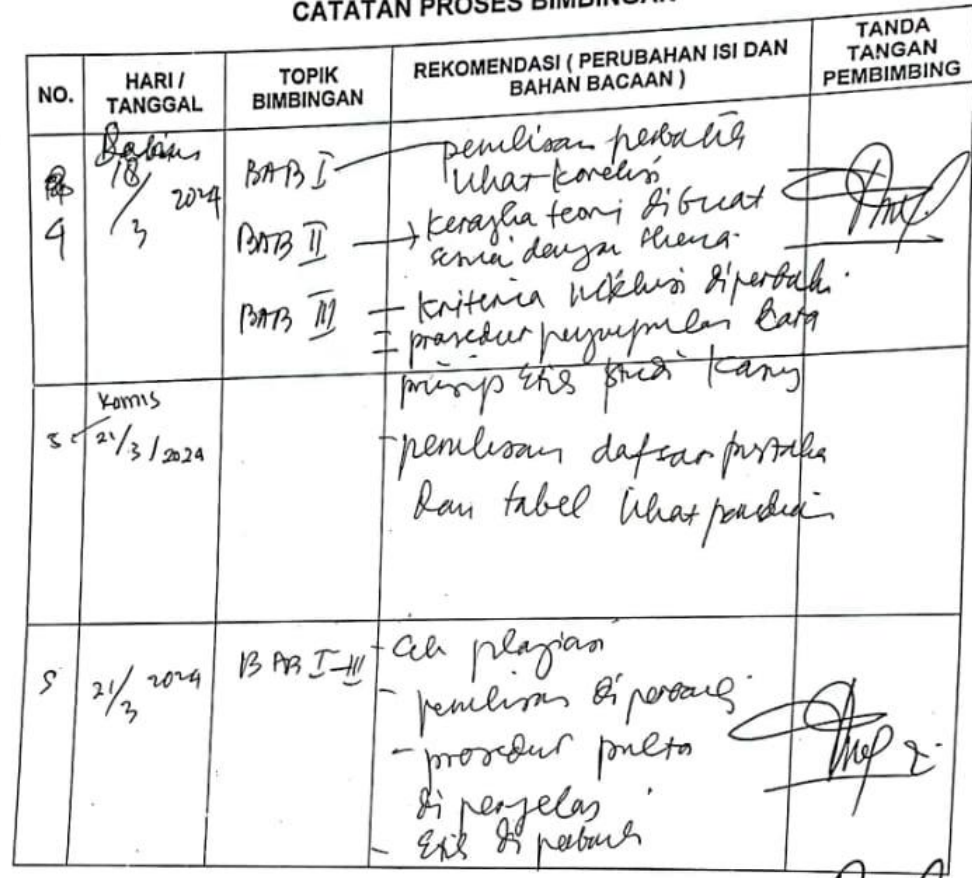 CATATAN PROSES BIMBINGAN
NO. HARI / TANGGAL TOPIK BIMBINGAN REKOMENDASI ( PERUBAHAN ISI DAN BAHAN BACAAN ) TANDA TANGAN PEMBIMBING
4 18/3 2024 BAB I penulisan
lihat koreksi
BAB II kerangka teori dibuat
sesuai dengan
BAB III - kriteria inklusi diperbaiki
- prosedur pengumpulan data
prinsip Etis studi kasus
5 Kamis
21/3/2024
- penulisan daftar pustaka
dan tabel lihat panduan
5 21/3 2024 BAB I-III - Cek plagiasi
- penulisan diperbaiki
- prosedur
di perjelas
- Etis di perbaiki